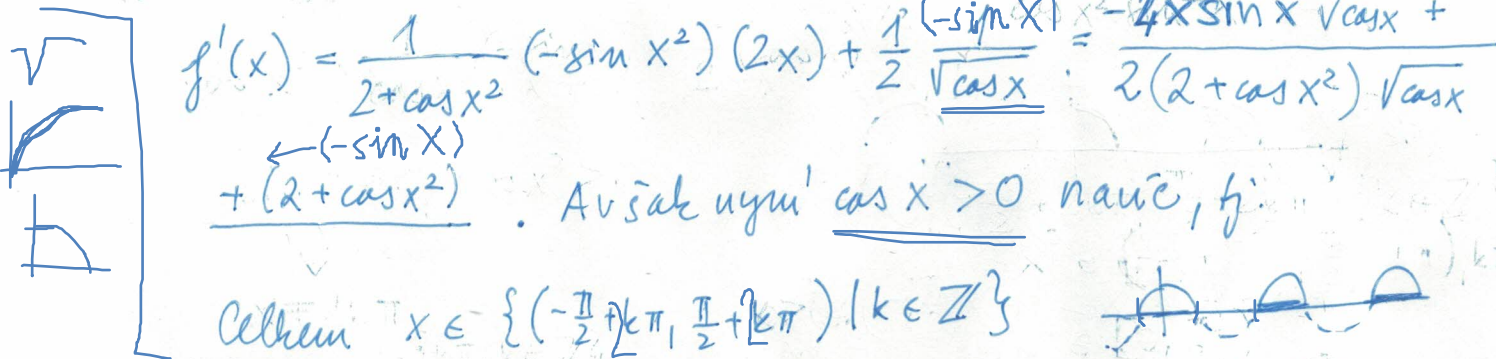 f'(x) = 1/(2+cos x²) (-sin x²)(2x) + 1/2 (-sin x)/√cos x = -4x sin x √cos x +/2(2+cos x²)√cos x
←(-sin x)
+(2+cos x²) . Avšak nyní cos x > 0 navíc, tj.
Celkem x ∈ {(-π/2+2kπ, π/2+2kπ) | k ∈ ℤ}